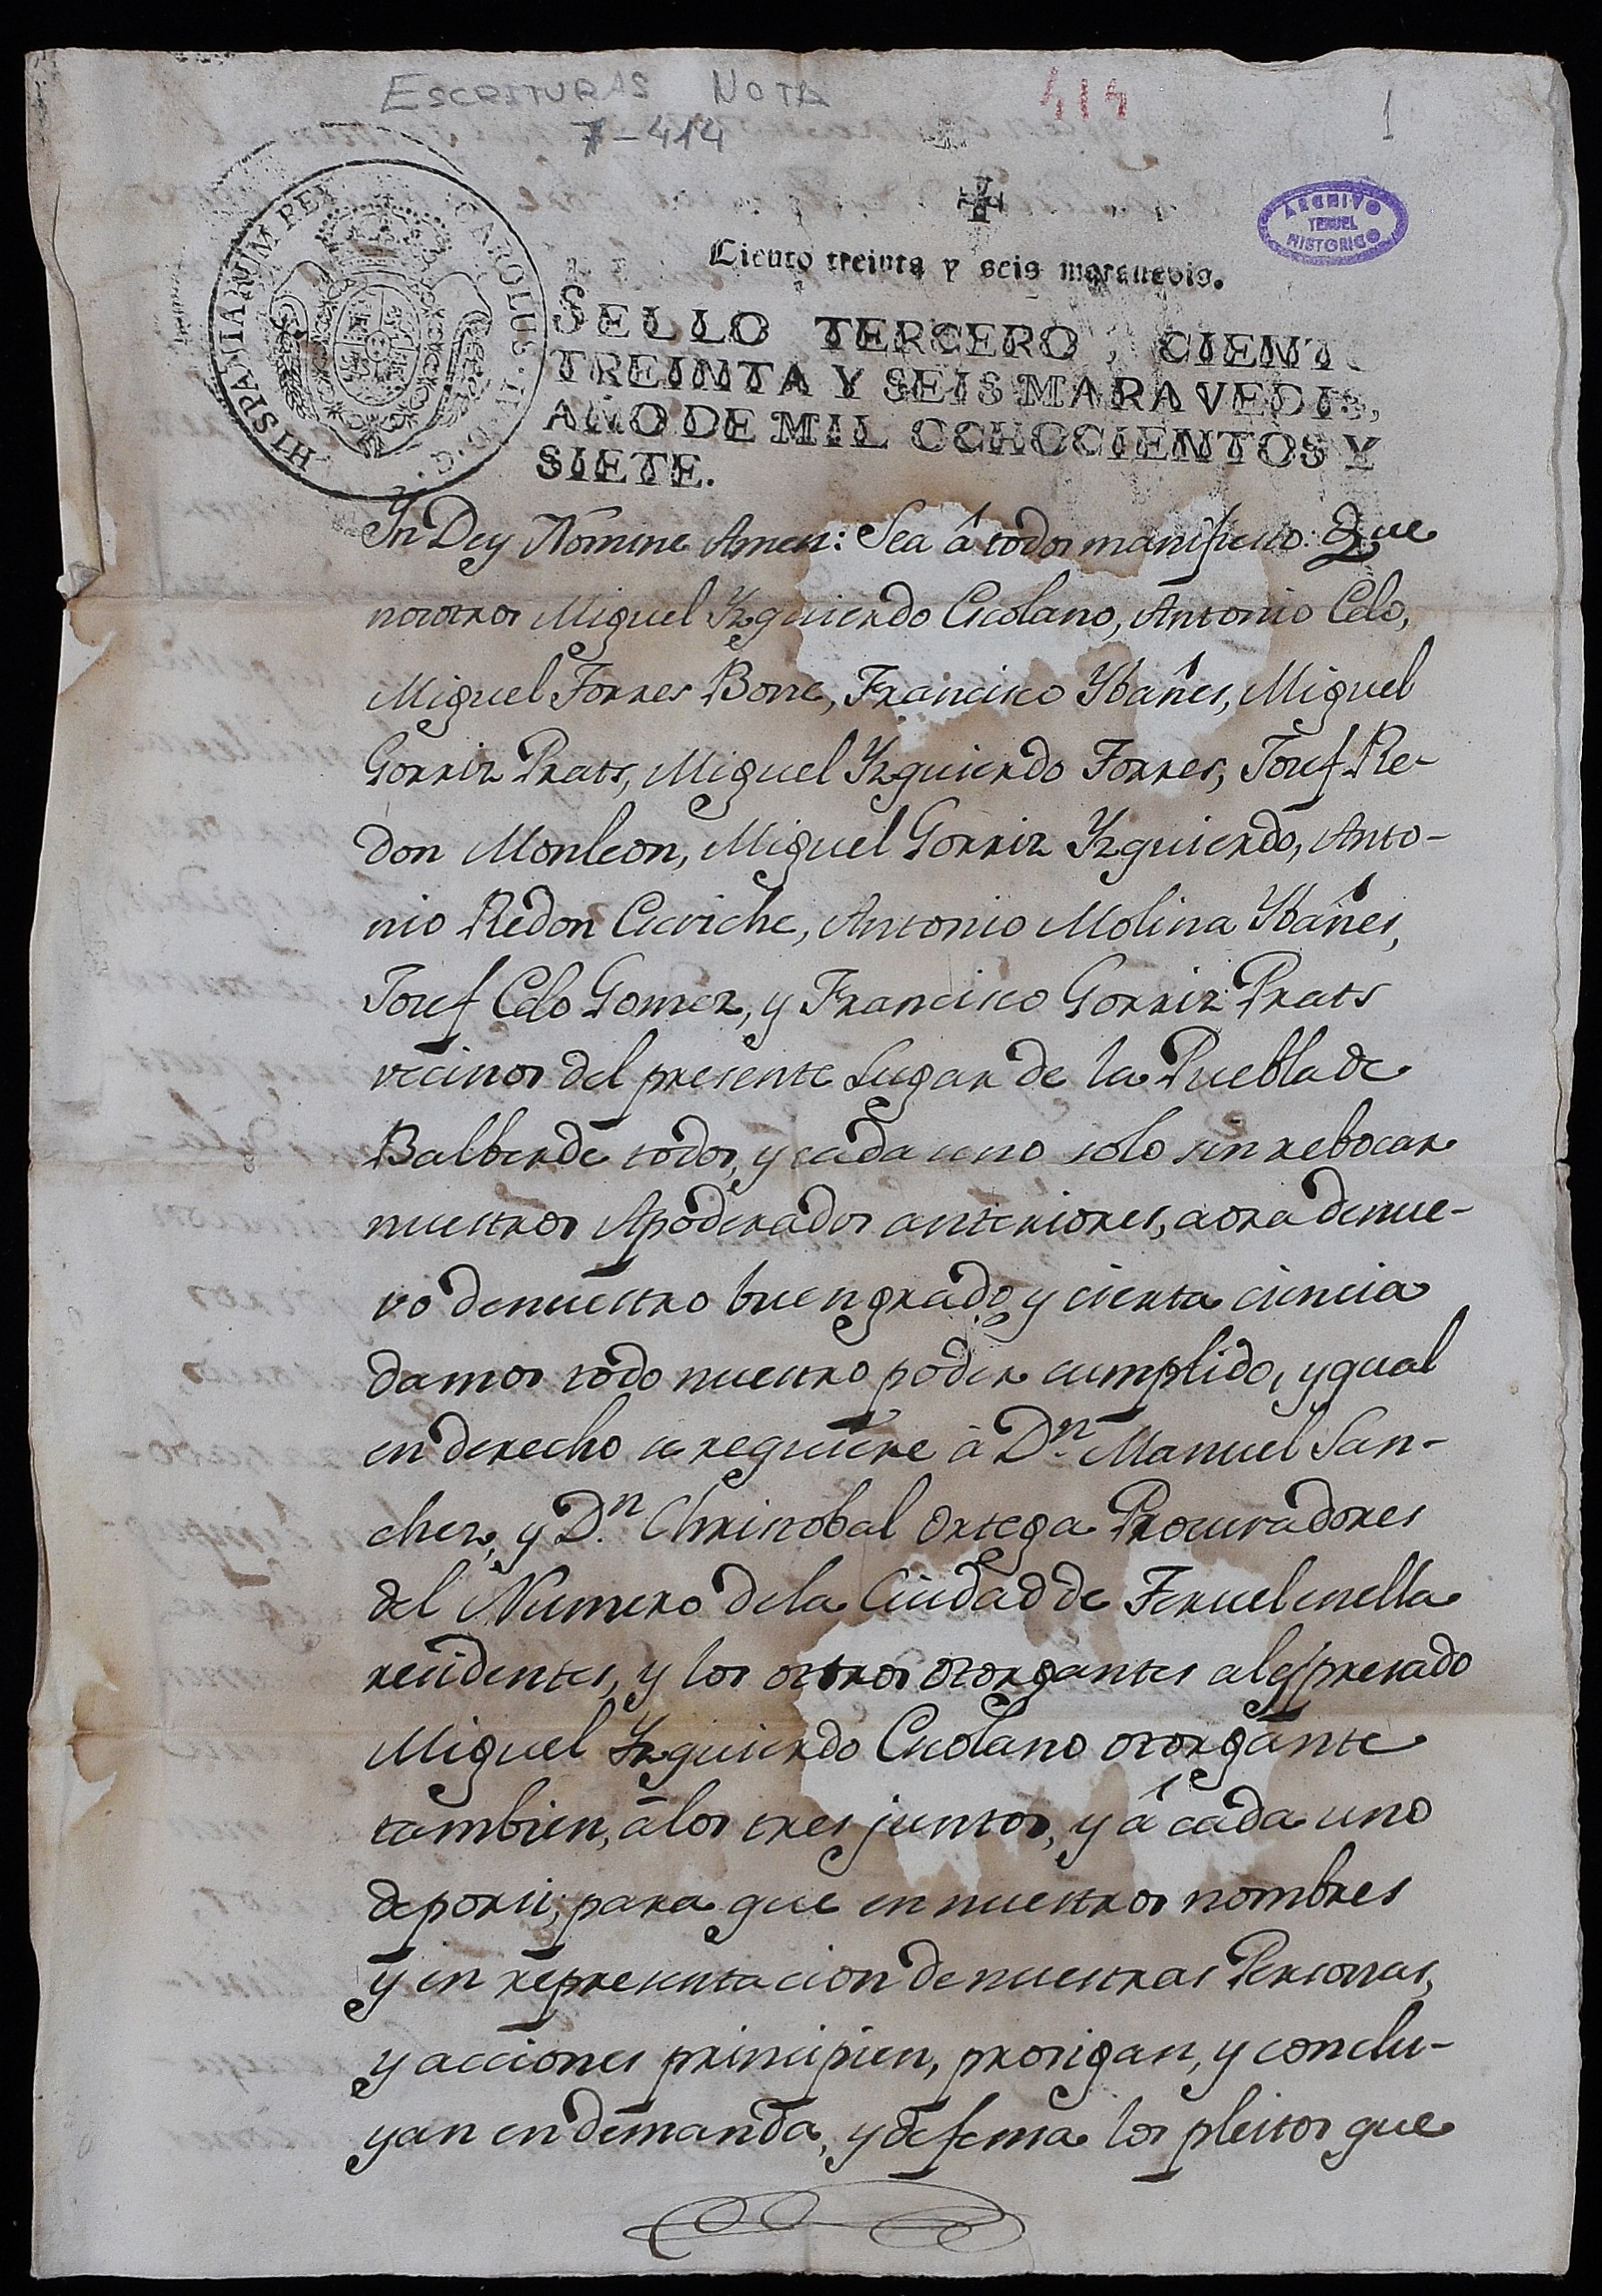 ESCRITURAS NOTA
7-414
414
1
ARCHIVO
TERUEL
HISTORICO
CAROLUS IV D.G. HISPANIARUM REX
Ciento treinta y seis maravedis.
SELLO TERCERO, CIENTO
TREINTA Y SEIS MARAVEDIS,
AÑO DE MIL OCHOCIENTOS Y
SIETE.
In Dey Nomine Amen: Sea â todos manifiesto: Que
nosotros Miguel Yzquierdo Escolano, Antonio Edo,
Miguel Torres Bone, Francisco Ybañes, Miguel
Gorriz Prats, Miguel Yzquierdo Torres, Josef Re-
don Monleon, Miguel Gorriz Yzquierdo, Anto-
nio Redon Escriche, Antonio Molina Ybañes,
Josef Edo Gomez, y Francisco Gorriz Prats
vecinos del presente Lugar de la Puebla de
Balberde todos, y cada uno solo sin rebocar
nuestros Apoderados anteriores, aora de nue-
vo de nuestro buen grado, y cierta ciencia
damos todo nuestro poder cumplido, y qual
en derecho se requiere à Dn. Manuel San-
chez, y Dn. Christobal Ortega Procuradores
del Numero de la Ciudad de Teruel en ella
residentes, y los otros otorgantes al espresado
Miguel Yzquierdo Escolano otorgante
tambien, à los tres juntos, y á cada uno
de por si; para que en nuestros nombres
y en representacion de nuestras Personas,
y acciones principien, prosigan, y conclu-
yan en demanda, y defensa los pleitos que